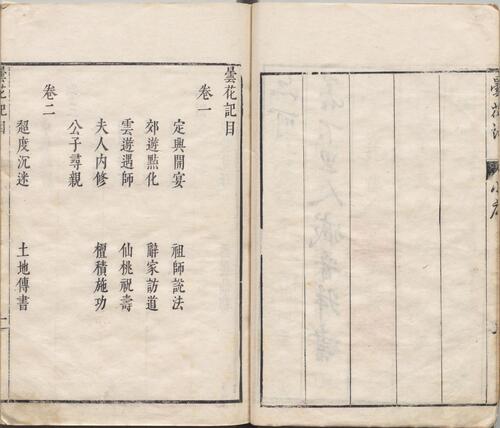 曇花記 小序
曇花記目
卷一
定興開宴 祖師說法
郊遊點化 辭家訪道
雲遊遇師 仙桃祝壽
夫人內修 檀積施功
公子尋親
卷二
超度沉迷 土地傳書
曇花記目